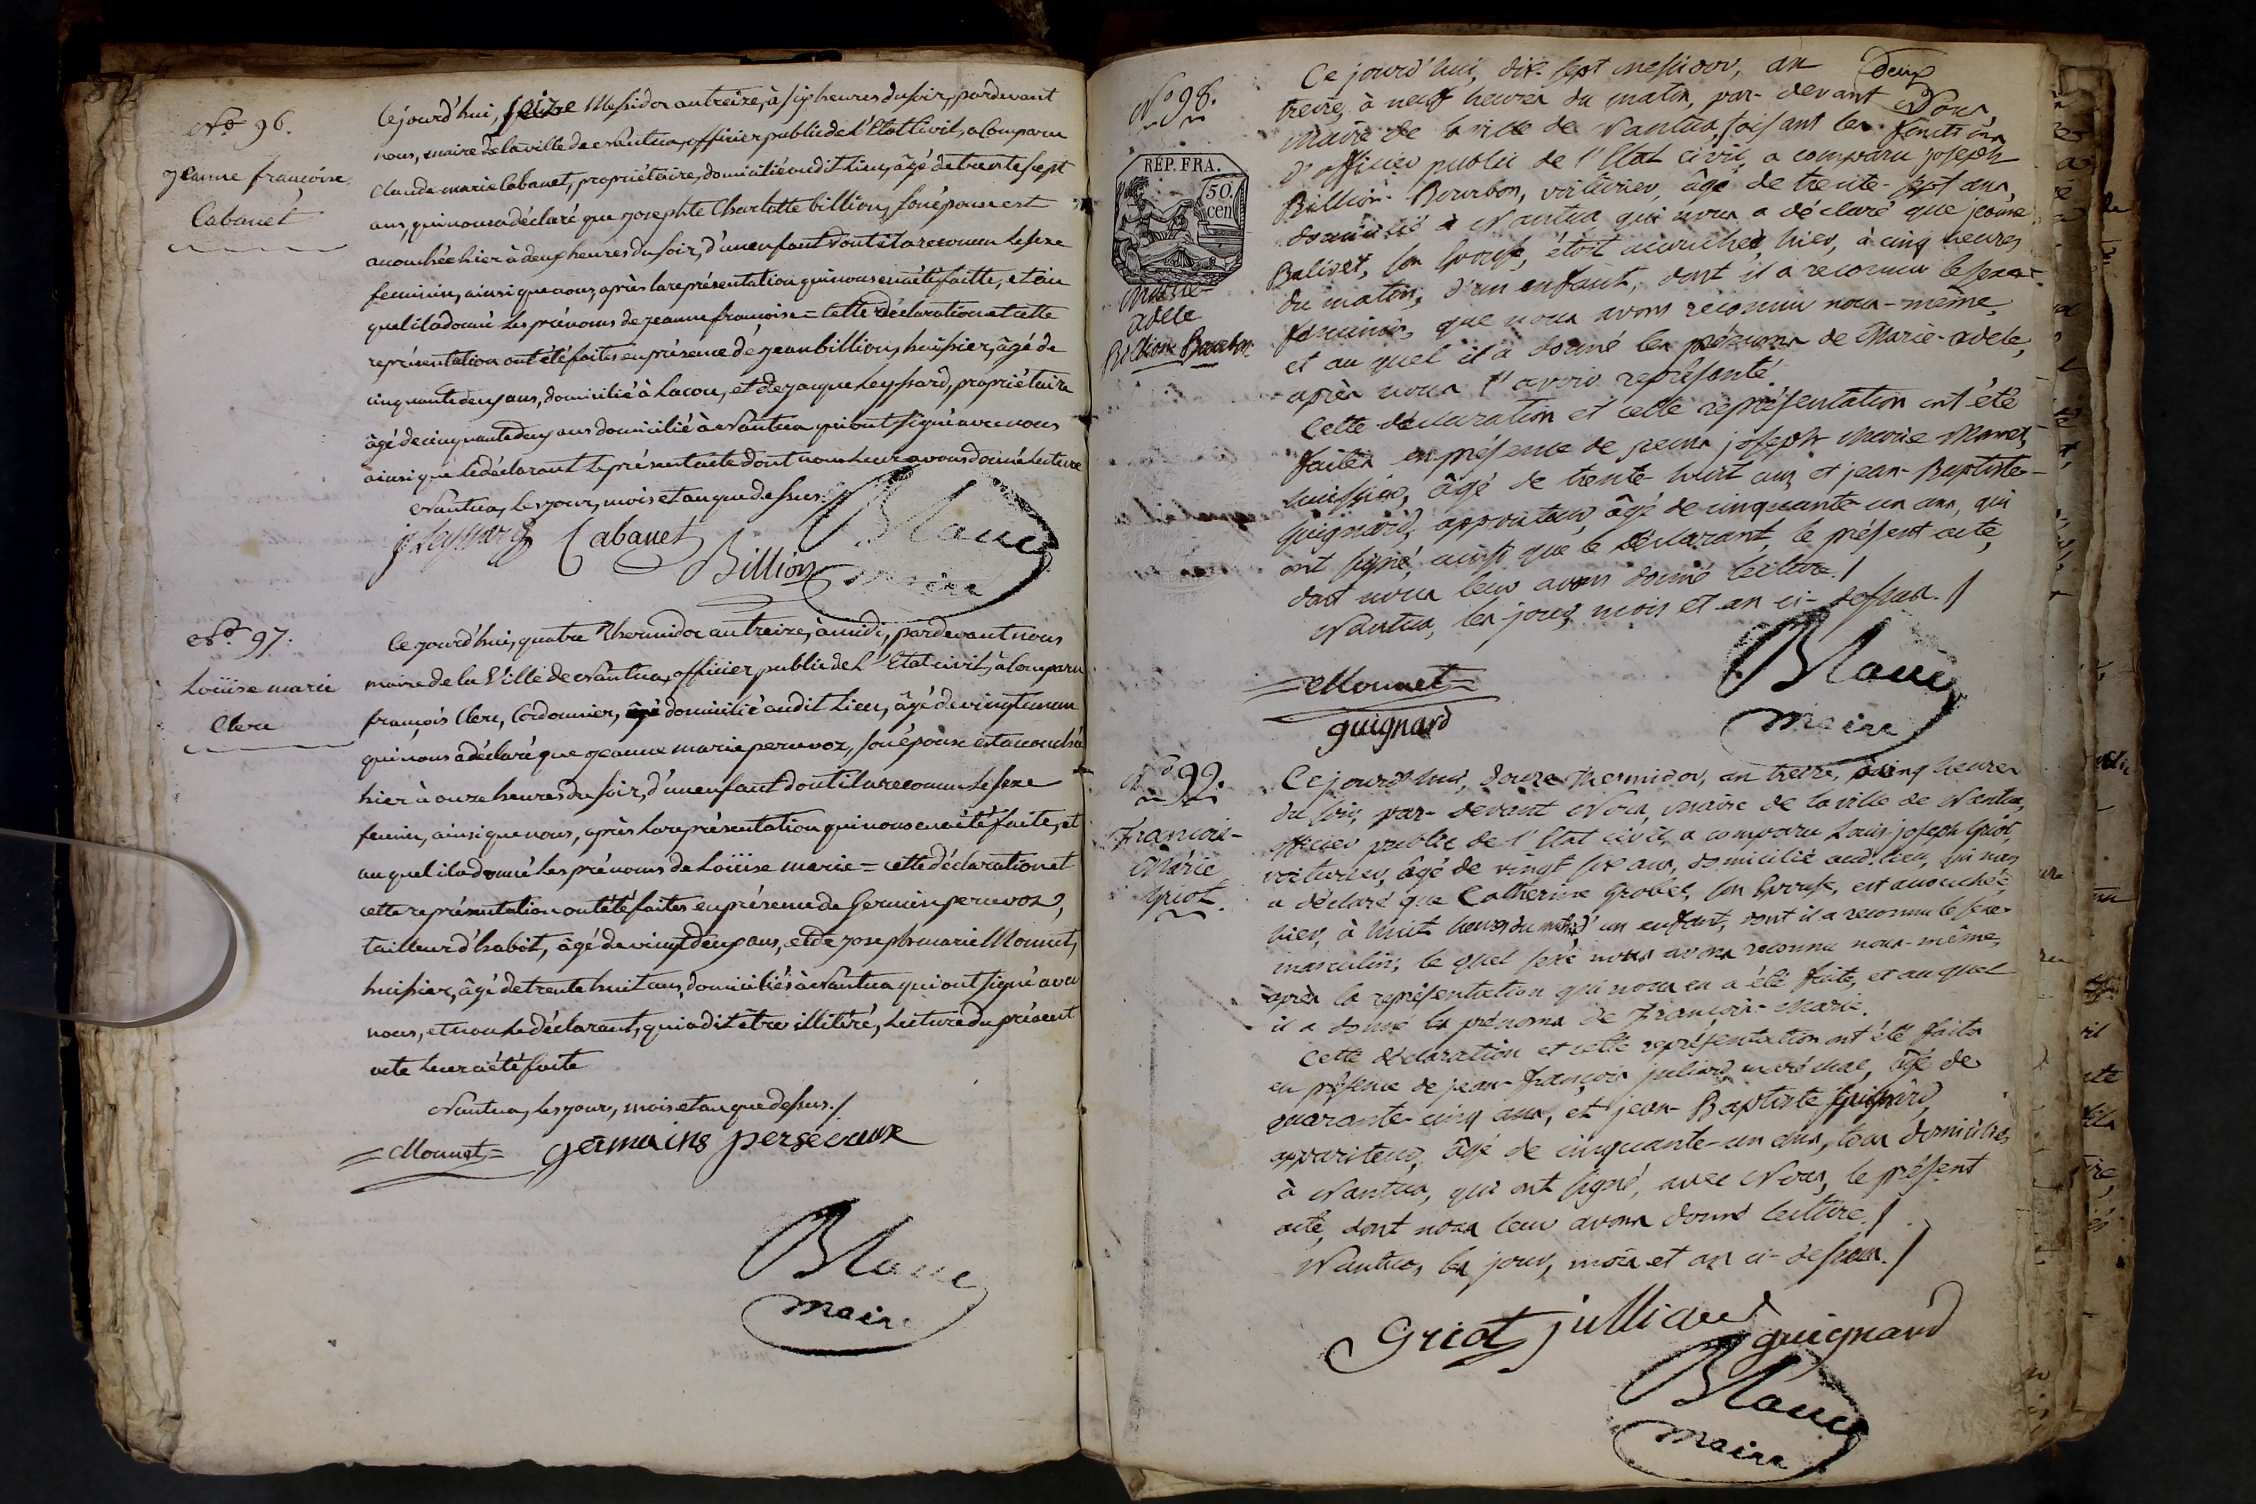 No 96.
jeanne françoise
Cabanet
Cejourd'hui, seize Messidor an treize, à six heures du soir, pardevant
nous, maire de la ville de Nantua, officier public de l'Etat Civil, a Comparu
Claude marie Cabanet, propriétaire, domicilié audit Lieu, âgé de trente sept
ans, qui nous a déclaré que josephte Charlotte billion, son épouse est
acouchée hier à deux heures du soir, d'un enfant dont il a reconnu le sexe
feminin, ainsi que nous, après la représentation qui nous en a été faitte, et au
quel il a donné Les prénoms de jeanne françoise = Cette déclaration et cette
représentation ont été faites en présence de jean billion, huissier, âgé de
cinquante deux ans, domicilié à Lacou, et de jacque Leyssard, propriétaire
âgé de cinquante deux ans domicilié à Nantua qui ont signé avec nous
ainsi que Le déclarant Le présent acte dont nous Leur avons donné Lecture
Nantua, Les jour, mois et an que dessus./
j Leyssard Cabanet Billion Blanc
maire
No 97.
Loüise marie
Clerc
Cejourd'hui, quatre Thermidor an treize, à midi, pardevant nous
maire de la Ville de Nantua, officier public de L'Etat civil, a Comparu
françois Clerc, Cordonnier, domicilié audit Lieu, âgé de vingt un ans
qui nous a déclaré que jeanne marie percevoz, son épouse est acouchée
hier à onze heures du soir, d'un enfant dont il a reconnu Le sexe
feminin, ainsi que nous, après la représentation qui nous en a été faite, et
au quel il a donné Les prénoms de Loüise marie = cette déclaration et
cette représentation ont été faites en présence de Germain percevoz,
tailleur d'habit, âgé de vingt deux ans, et de joseph marie Monnet,
huissier, âgé de trente huit ans, domiciliés à Nantua qui ont signé avec
nous, et non Le déclarant, qui a dit être illitéré, Lecture du présent
acte Leur a été faite
Nantua, Les jour, mois et an que dessus./
= Monnet = germains
Blanc
maire
No 98.
REP. FRA.
50.
cen
Marie-
adele
Billion Bourbon
Ce jourd'hui, dix-sept messidor, an
treize, à neuf heures du matin, par-devant Nous
maire de la ville de Nantua, faisant les fonctions
d'officier public de l'Etat civil, a comparu joseph
Billion-Bourbon, voiturier, âgé de trente-sept ans,
domicilié à Nantua qui nous a déclaré que jeanne
Balivet, son Epouse, étoit accouchée, hier, à cinq heures
du matin, d'un enfant, dont il a reconnu le sexe
féminin, que nous avons reconnu nous-même,
et au quel il a donné les prénoms de Marie-adele,
après nous l'avoir représenté.
Cette déclaration et cette représentation ont été
faites en présence de joseph Marie Monnet,
huissier, âgé de trente-huit ans, et jean-Baptiste-
guignard, appariteur, âgé de cinquante-un ans, qui
ont signé, ainsi que le déclarant, le présent acte,
dont nous leur avons donné lecture./
Nantua, les jour, mois et an ci-dessus./
= Monnet =
guignard
Blanc
maire
No 99.
François-
Marie
Griot.
Ce jourd'hui, douze Thermidor, an treize, à cinq heures
du soir, par-devant Nous, maire de la ville de Nantua,
officier public de l'Etat civil, a comparu Louis joseph Griot,
voiturier, âgé de vingt six ans, domicilié audit lieu, qui nous
a déclaré que Catherine Grobel, son Epouse, est accouchée,
hier, à huit heures du matin, d'un enfant, dont il a reconnu le sexe
masculin, le quel sexe nous avons reconnu nous-même,
après la représentation qui nous en a été faite, et au quel
il a donné les prénoms de François-Marie.
Cette déclaration et cette représentation ont été faites
en présence de jean-françois juliard, maréchal, âgé de
quarante-cinq ans, et jean-Baptiste guignard,
appariteur, âgé de cinquante-un ans, tous domiciliés
à Nantua, qui ont signé, avec Nous, le présent
acte, dont nous leur avons donné lecture./
Nantua, les jour, mois et an ci-dessus./
Griot julliard
guignard
Blanc
maire